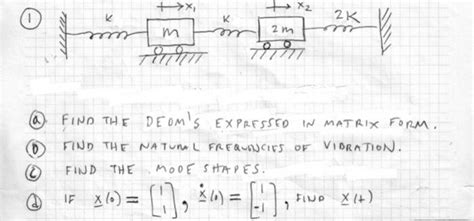 ① K →x₁ K →x₂ 2K
m 2m
ⓐ FIND THE DEOM'S EXPRESSED IN MATRIX FORM.
ⓑ FIND THE NATURAL FREQUENCIES OF VIBRATION.
ⓒ FIND THE MODE SHAPES.
ⓓ IF x(0) = [1 1], ẋ(0) = [1 -1], FIND x(t)